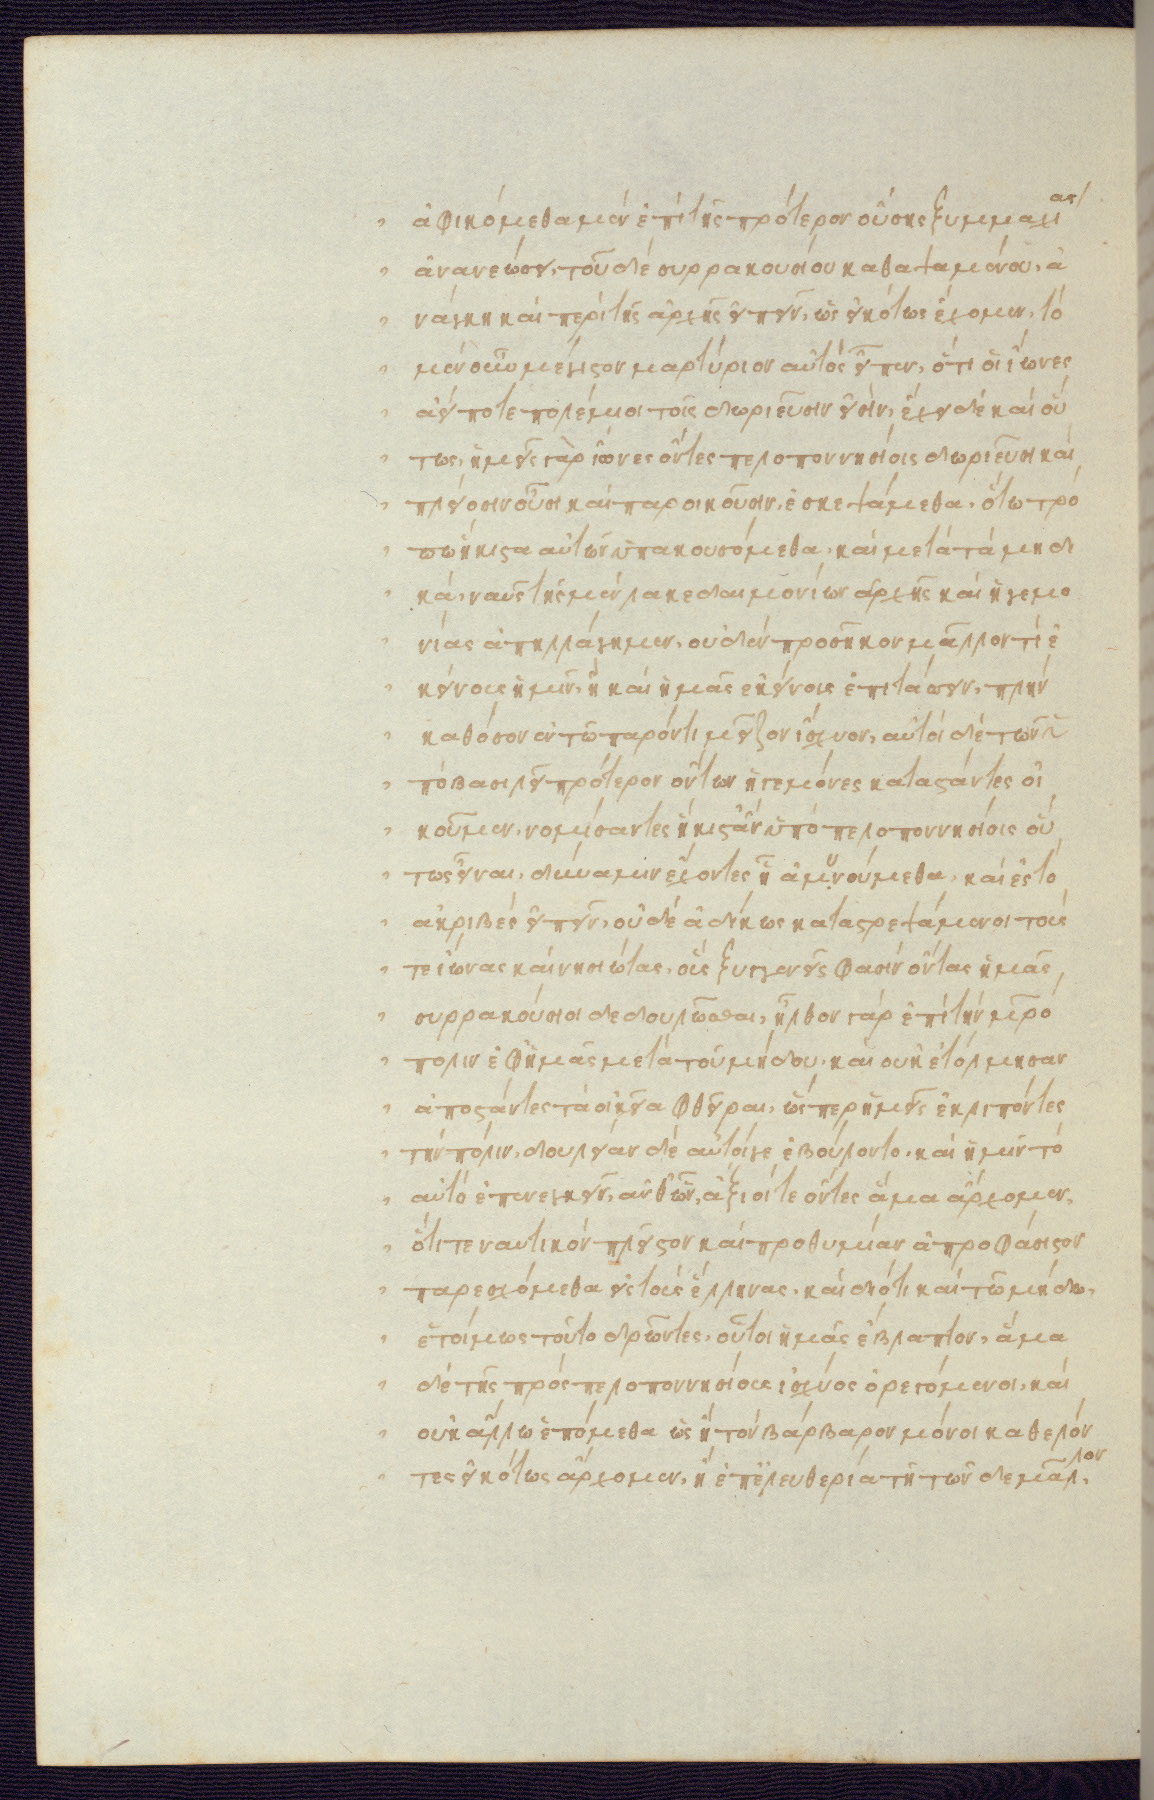 ἀφικόμεθα μὲν ἐπὶ τῆς πρότερον οὔσης ξυμμαχίας
ἀνανεώσει, τοῦ δὲ συρρακουσίου καθαψαμένου, ἀ
νάγκη καὶ περὶ τῆς ἀρχῆς εἰπεῖν, ὡς εἰκότως ἔχομεν, τὸ
μὲν οὖν μέγιστον μαρτύριον αὐτὸς εἶπεν, ὅτι οἱ ἴωνες
αἰεί ποτε πολέμιοι τοῖς δωριεῦσιν εἰσὶν, ἔχει δὲ καὶ οὕ
τως, ἡμεῖς γὰρ ἴωνες ὄντες πελοποννησίοις δωριεῦσι καὶ
πλείοσιν οὖσι καὶ παροικοῦσιν, ἐσκεψάμεθα, ὅτω τρό
πω ἥκιστα αὐτῶν ὑπακουσόμεθα, καὶ μετὰ τὰ μηδι
κὰ, ναῦς τῆς μὲν λακεδαιμονίων ἀρχῆς καὶ ἡγεμο
νίας ἀπηλλάγημεν, οὐδὲν προσῆκον μᾶλλον τὶ ἐ
κείνους ἡμῖν, ἢ καὶ ἡμᾶς ἐκείνοις ἐπιτάσσειν, πλὴν
καθόσον ἐν τῶ παρόντι μεῖζον ἴσχυον, αὐτοὶ δὲ τῶν ὑ
πὸ βασιλεῖ πρότερον ὄντων ἡγεμόνες καταστάντες οἰ
κοῦμεν, νομίσαντες ἥκιστ' ἂν ὑπὸ πελοποννησίοις οὕ
τως εἶναι, δύναμιν ἔχοντες ἧ ἀμυνούμεθα, καὶ ἐς τὸ
ἀκριβὲς εἰπεῖν, οὐδὲ ἀδίκως καταστρεψάμενοι τοὺς
τε ἴωνας καὶ νησιώτας, οὓς ξυγγενεῖς φασὶν ὄντας ἡμᾶς
συρρακούσιοι δεδουλῶσθαι, ἦλθον γὰρ ἐπὶ τὴν μητρό
πολιν ἐφ' ἡμᾶς μετὰ τοῦ μήδου, καὶ οὐκ ἐτόλμησαν
ἀποστάντες τὰ οἰκεῖα φθεῖραι, ὥσπερ ἡμεῖς ἐκλιπόντες
τὴν πόλιν, δουλείαν δὲ αὐτοί γε ἐβούλοντο, καὶ ἡμῖν τὸ
αὐτὸ ἐπενεγκεῖν, ἀνθ' ὧν, ἄξιοί τε ὄντες ἅμα ἄρχομεν,
ὅτι τε ναυτικὸν πλεῖστον καὶ προθυμίαν ἀπροφάσιστον
παρεσχόμεθα εἰς τοὺς ἕλληνας, καὶ διότι καὶ τῶ μήδω,
ἑτοίμως τοῦτο δρῶντες, οὗτοι ἡμᾶς ἔβλαπτον, ἅμα
δὲ τῆς πρὸς πελοποννησίους ἰσχύος ὀρεγόμενοι, καὶ
οὐκ ἄλλω ἑπόμεθα ὡς ἢ τὸν βάρβαρον μόνοι καθελόν
τες εἰκότως ἄρχομεν, ἢ ἐπ' ἐλευθερία τῆ τῶν δε μᾶλλον